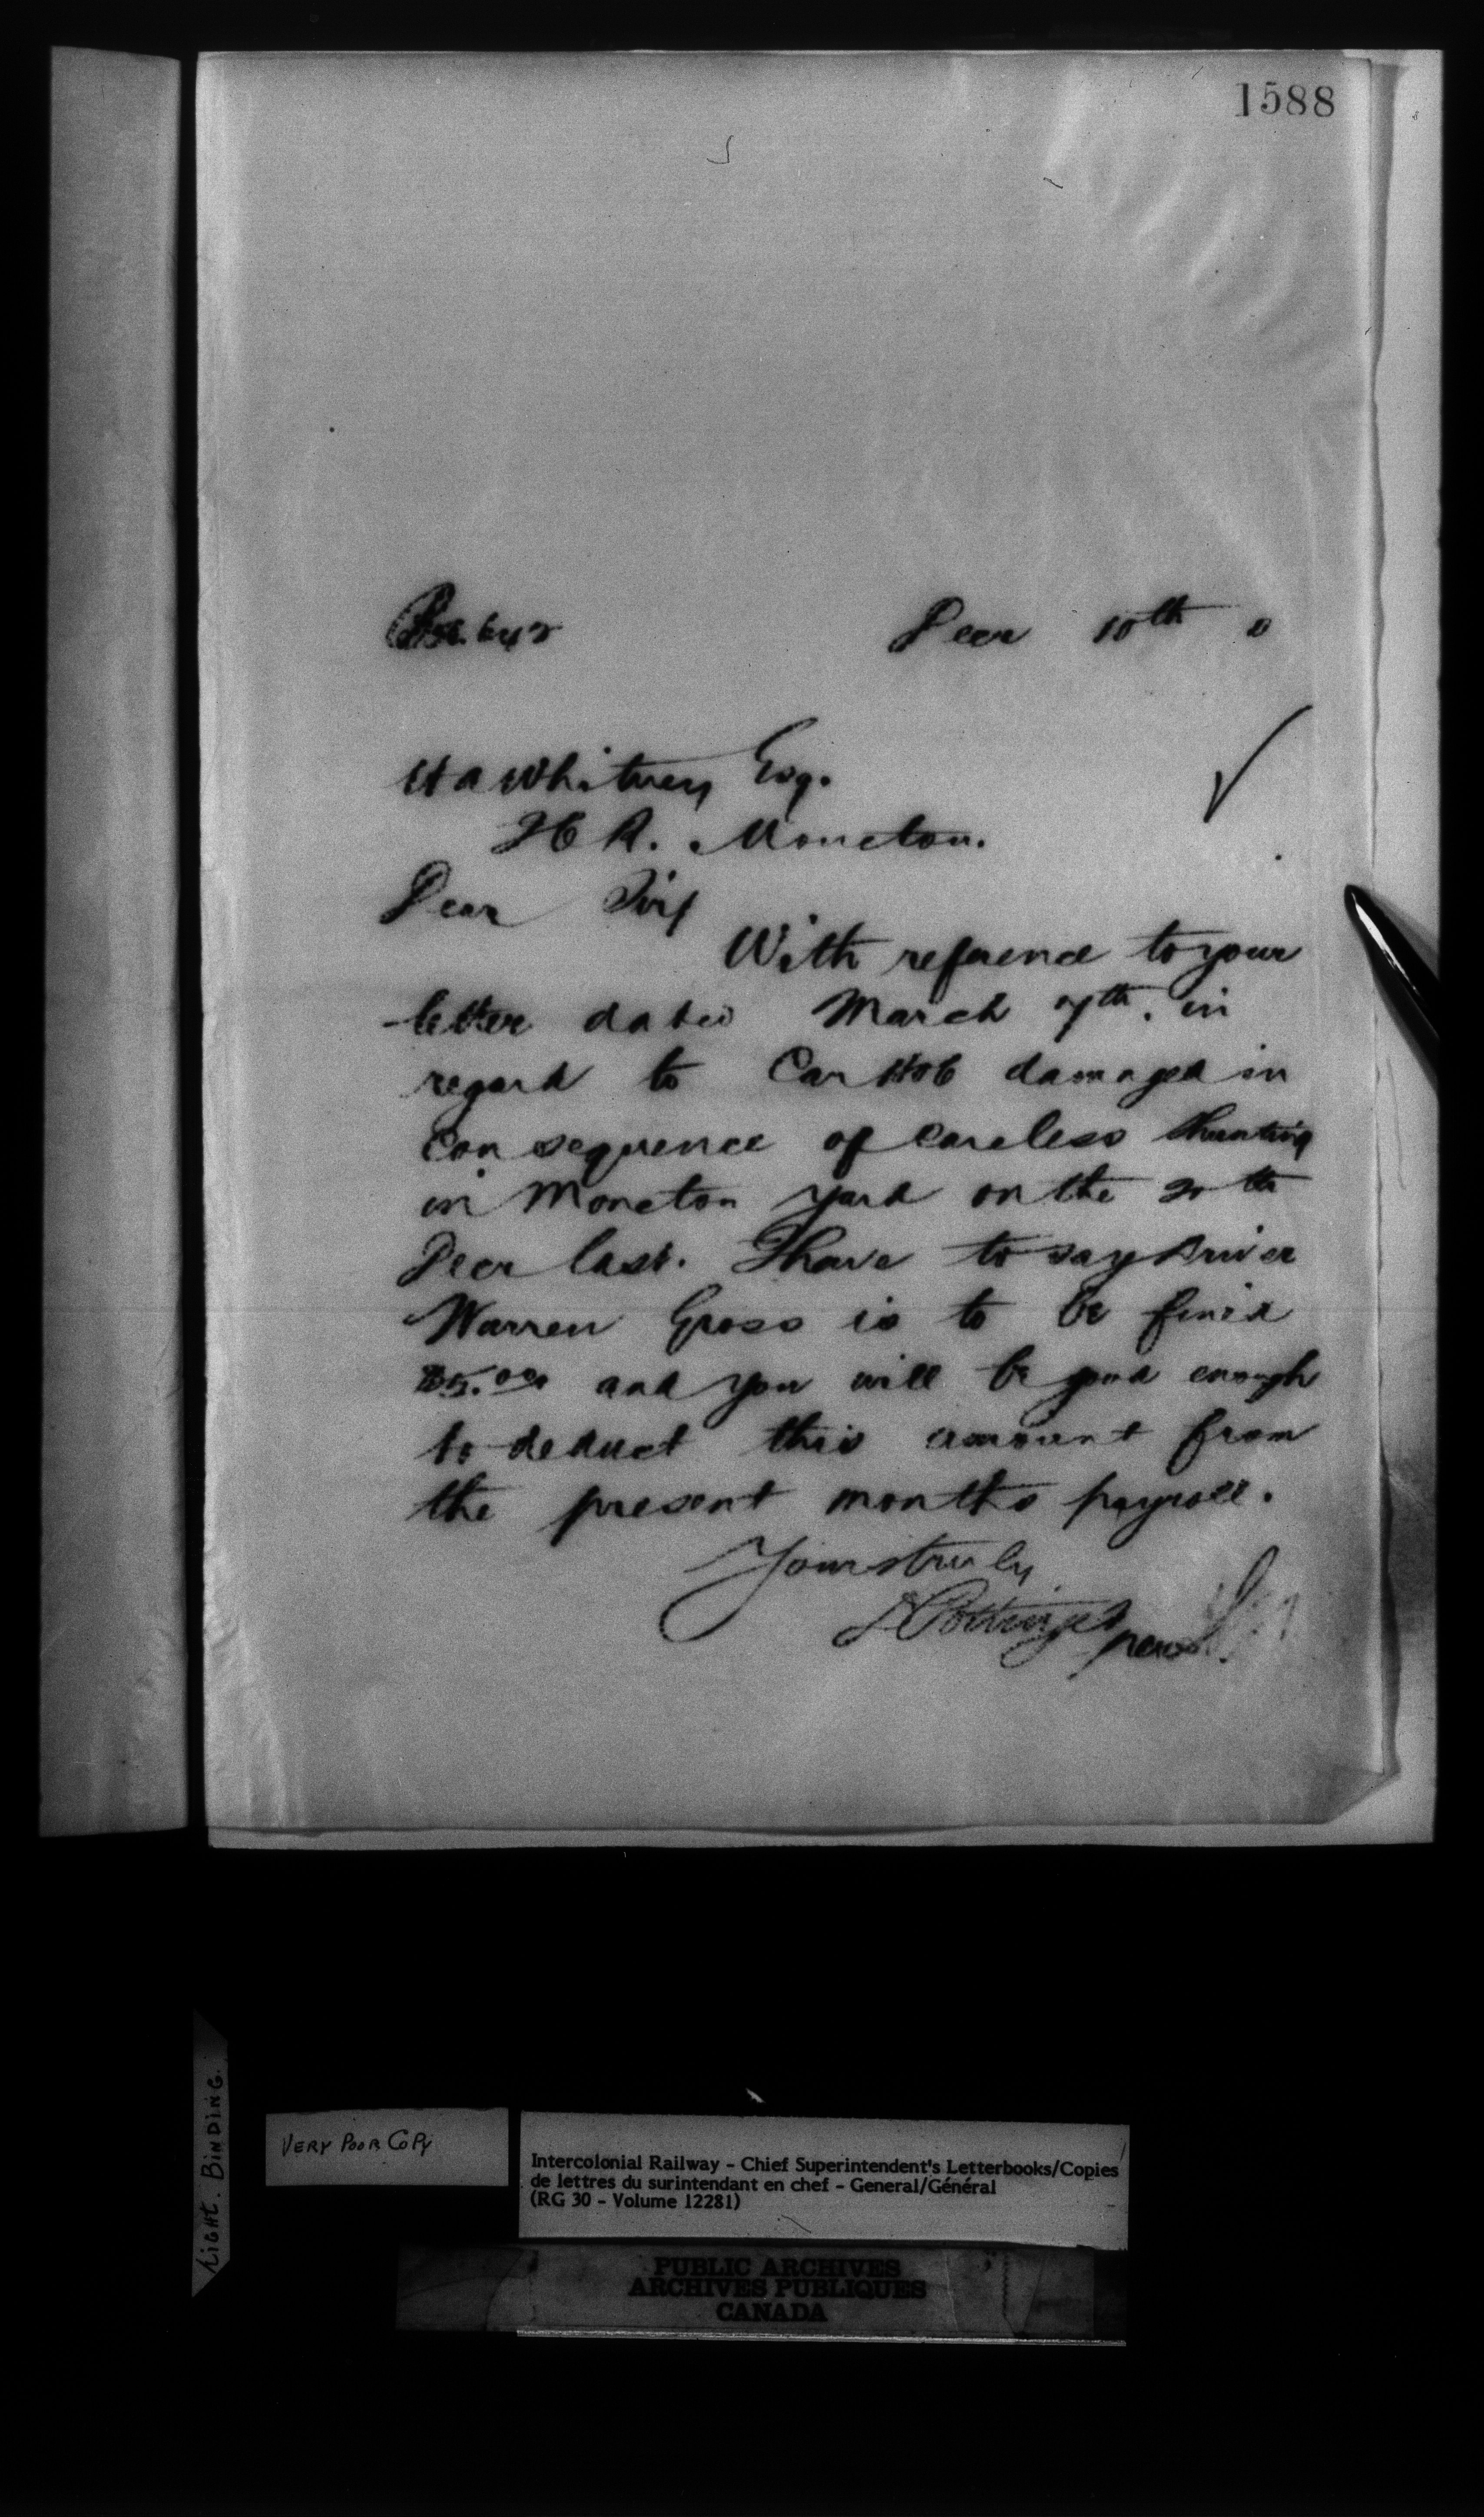 1588
Decr 10th 0
H A Whitney Esq.
H R. Moncton.
Dear Sir,
With reference to your
letter dated March 7th. in
regard to Car damaged in
Consequence of careless Shunting
in Moncton yard on the 20th
Decr last. I have to say Driver
Warren Gross is to be fined
$5.00 and you will be good enough
to deduct this amount from
the present months payroll.
Yours truly
D Pottinger
per
LIGHT. BINDING.
VERY POOR COPY
Intercolonial Railway – Chief Superintendent's Letterbooks/Copies
de lettres du surintendant en chef – General/Général
(RG 30 – Volume 12281)
PUBLIC ARCHIVES
ARCHIVES PUBLIQUES
CANADA